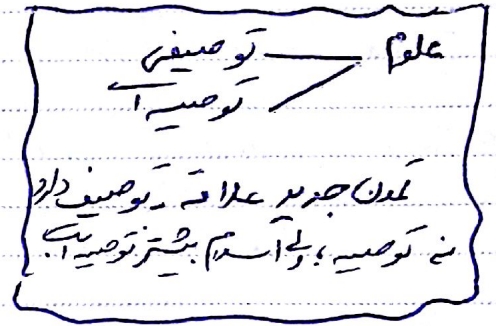 علوم توصیفی
توصیه ای
تمدن جدید علاقه به توصیف دارد
نه توصیه؛ ولی اسلام بیشتر توصیه ای است.